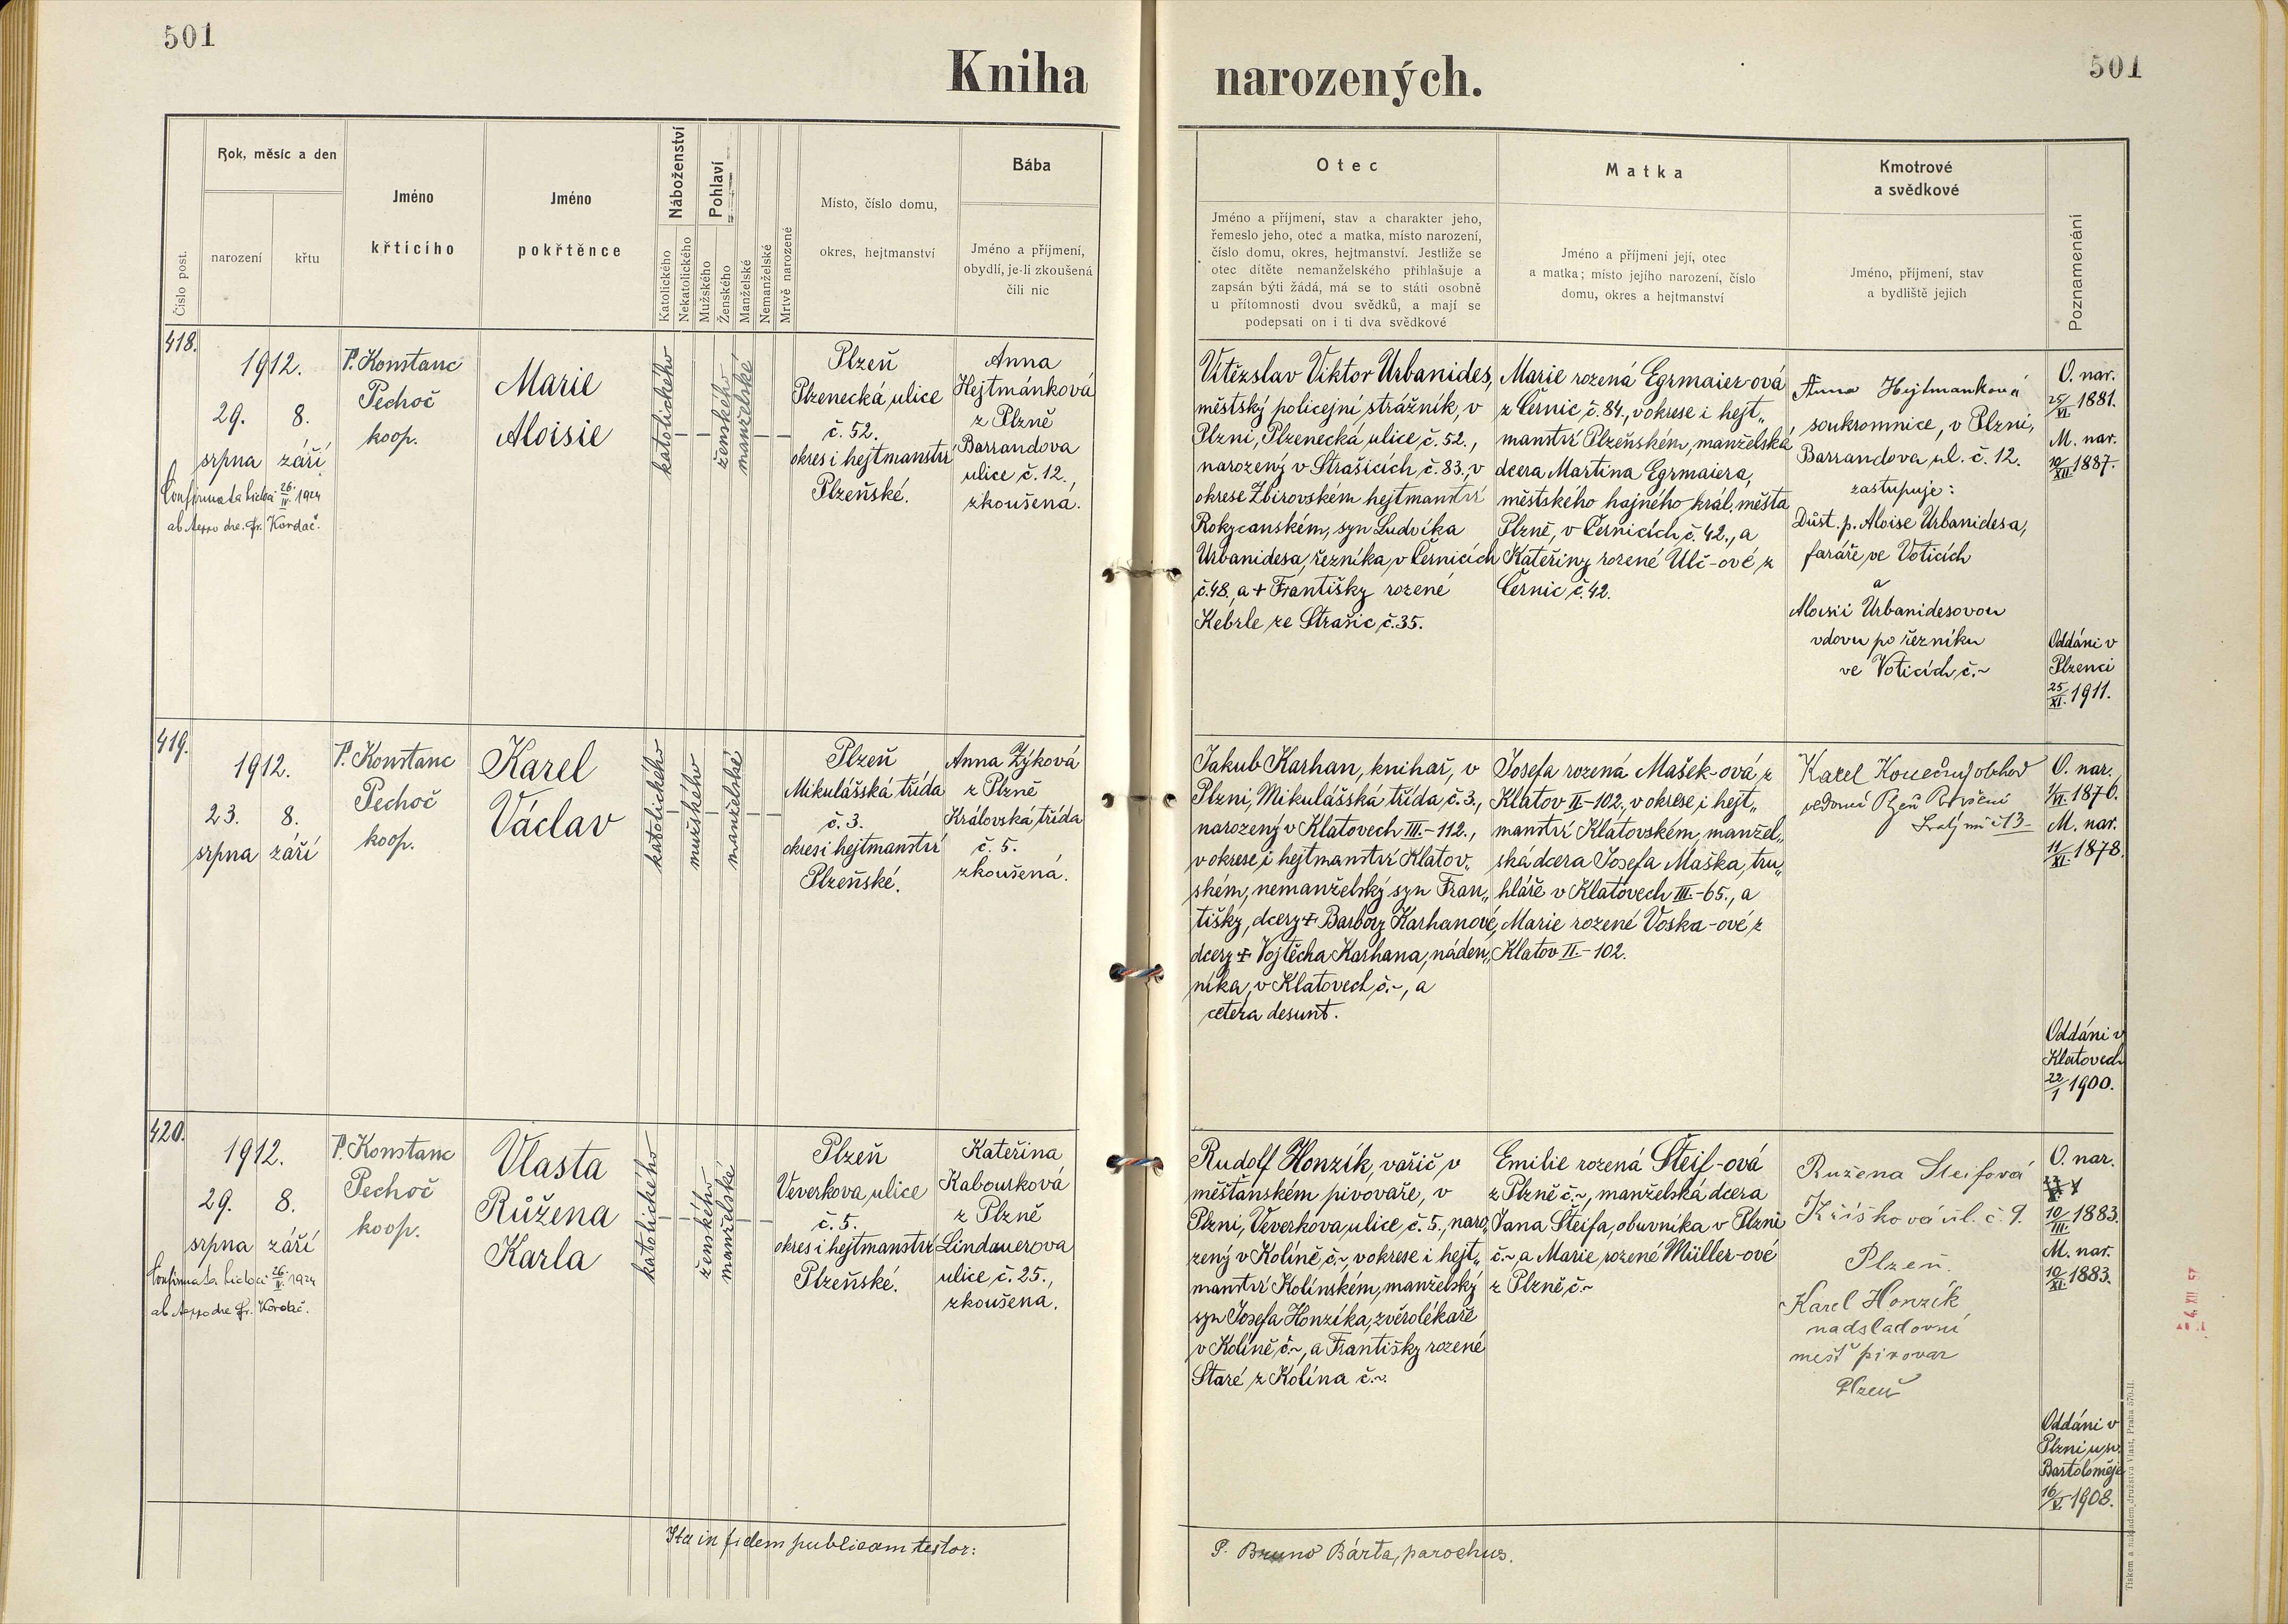 501
501
Kniha narozených.
Číslo post.
Rok, měsíc a den
narození
křtu
Jméno
křtícího
Jméno
pokřtěnce
Náboženství
Katolického
Nekatolického
Pohlaví
Mužského
Ženského
Manželské
Nemanželské
Mrtvě narozené
Místo, číslo domu,
okres, hejtmanství
Bába
Jméno a příjmení,
obydlí, je-li zkoušená
čili nic
Otec
Jméno a příjmení, stav a charakter jeho,
řemeslo jeho, otec a matka, místo narození,
číslo domu, okres, hejtmanství. Jestliže se
otec dítěte nemanželského přihlašuje a
zapsán býti žádá, má se to státi osobně
u přítomnosti dvou svědků, a mají se
podepsati on i ti dva svědkové
Matka
Jméno a příjmení její, otec
a matka; místo jejího narození, číslo
domu, okres a hejtmanství
Kmotrové
a svědkové
Jméno, příjmení, stav
a bydliště jejich
Poznamenání
418.
1912.
29. 8.
srpna září
Confirmata 26./IV. 1924
ab Aeppo dre. Fr. Kordač.
P. Konstanc
Pechoč
koop.
Marie
Aloisie
katolického
—
—
ženského
manželské
—
—
Plzeň
Plzenecká ulice
č. 52.
okres i hejtmanství
Plzeňské.
Anna
Hejtmánková
z Plzně
Barrandova
ulice č. 12.,
zkoušená.
Vítězslav Viktor Urbanides,
městský policejní strážník, v
Plzni, Plzenecká ulice, č. 52.,
narozený v Strašicích č. 83., v
okrese Zbirovském hejtmanství
Rokycanském, syn Ludvíka
Urbanidesa, řezníka, v Černicích
č. 48., a + Františky rozené
Kebrle ze Strašic č. 35.
Marie rozená Egrmaier-ová
z Černic č. 84., v okrese i hejt„
manství Plzeňském, manželská
dcera Martina Egrmaiera,
městského hajného král. města
Plzně, v Černicích č. 42., a
Kateřiny rozené Ulč-ové z
Černic č. 42.
Anna Hejtmanková
soukromnice, v Plzni,
Barrandova ul. č. 12.
zastupuje:
Důst. p. Aloise Urbanidesa,
faráře ve Voticích
a
Aloisii Urbanidesovou
vdovu po řezníku
ve Voticích č. ~
O. nar.
25/VI. 1881.
M. nar.
10/XII. 1887.
Oddáni v
Plzenci
25/XI. 1911.
419.
1912.
23. 8.
srpna září
P. Konstanc
Pechoč
koop.
Karel
Václav
katolického
—
mužského
—
manželské
—
—
Plzeň
Mikulášská třída
č. 3.
okres i hejtmanství
Plzeňské.
Anna Zýková
z Plzně
Královská třída
č. 5.
zkoušená.
Jakub Karhan, knihař, v
Plzni, Mikulášská třída, č. 3.,
narozený v Klatovech III.-112.,
v okrese i hejtmanství Klatov„
ském, nemanželský syn Fran„
tišky, dcery + Barbory Karhanové,
dcery + Vojtěcha Karhana, náden„
níka, v Klatovech, č. ~, a
cetera desunt.
Josefa rozená Mašek-ová z
Klatov II-102. v okrese i hejt„
manství Klatovském, manžel„
ská dcera Josefa Maška, tru„
hláře v Klatovech III.-65., a
Marie rozené Voska-ové z
Klatov II.-102.
Karel Konečný obchod
vedoucí Plzeň
13
O. nar.
1/VI. 1876.
M. nar.
11/XI. 1878.
Oddáni v
Klatovech
22/1 1900.
420.
1912.
29. 8.
srpna září
Confirmata 26./IV. 1924
ab Aeppo dre Fr. Kordač.
P. Konstanc
Pechoč
koop.
Vlasta
Růžena
Karla
katolického
—
—
ženského
manželské
—
—
Plzeň
Veverkova ulice
č. 5.
okres i hejtmanství
Plzeňské.
Kateřina
Kabourková
z Plzně
Lindauerova
ulice, č. 25.,
zkoušená.
Rudolf Honzík, vařič v
měšťanském pivovaře, v
Plzni, Veverkova ulice, č. 5., naro„
zený v Kolíně č. ~, v okrese i hejt„
manství Kolínském, manželský
syn Josefa Honzíka, zvěrolékaře
v Kolíně, č. ~, a Františky rozené
Staré z Kolína č. ~.
Emilie rozená Šteif-ová
z Plzně č. ~, manželská dcera
Jana Šteifa, obuvníka v Plzni
č. ~ a Marie, rozené Müller-ové
z Plzně, č. ~
Ružena Steifová
Křižíková úl. č. 9.
Plzeň.
Karel Honzík
nadsladovní
mešť pivovar
Plzeň
O. nar.
10/III. 1883.
M. nar.
10/XI. 1883.
Oddáni v
Plzni u sv.
Bartoloměje
16/V. 1908.
Ita in fidem publicam testor:
P. Bruno Bárta, parochus.
Tiskem a nákladem družstva Vlast, Praha 570-II.